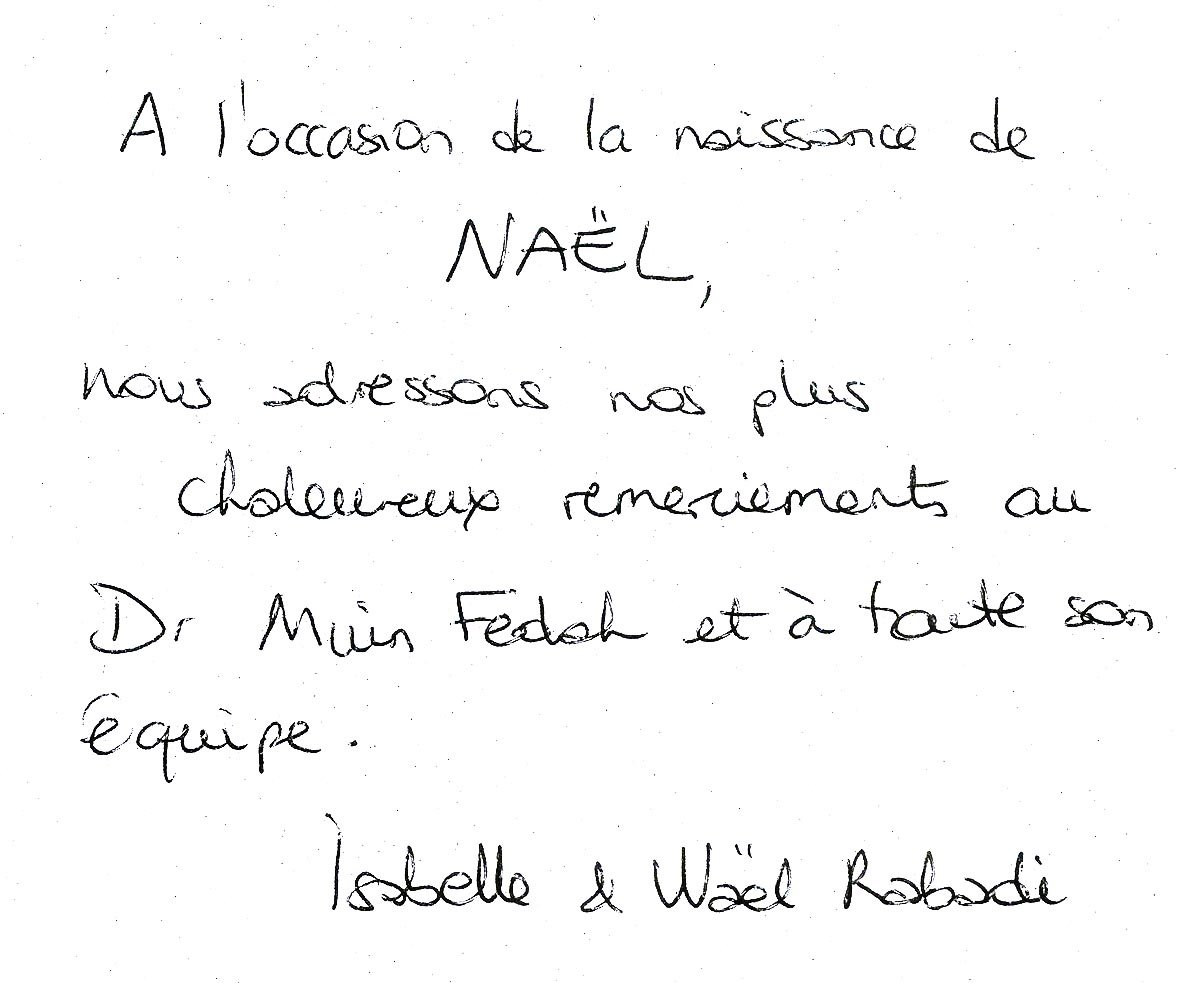 A l'occasion de la naissance de
NAËL,
nous adressons nos plus
chaleureux remerciements au
Dr Muin Fedah et à toute son
équipe.
Isabelle & Waël Rabadi